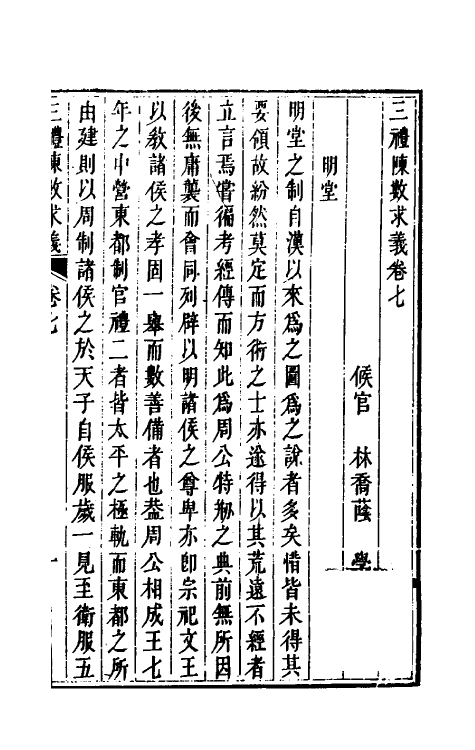 三禮陳數求義卷七
候官　林喬蔭　學
明堂
明堂之制自漢以來爲之圖爲之說者多矣惜皆未得其
要領故紛然莫定而方術之士亦遂得以其荒遠不經者
立言焉嘗徧考經傳而知此爲周公特剏之典前無所因
後無庸襲而會同列辟以明諸侯之尊卑亦卽宗祀文王
以敎諸侯之孝固一舉而數善備者也葢周公相成王七
年之中營東都制官禮二者皆太平之極軌而東都之所
由建則以周制諸侯之於天子自侯服歲一見至衛服五
三禮陳數求義
卷七
一